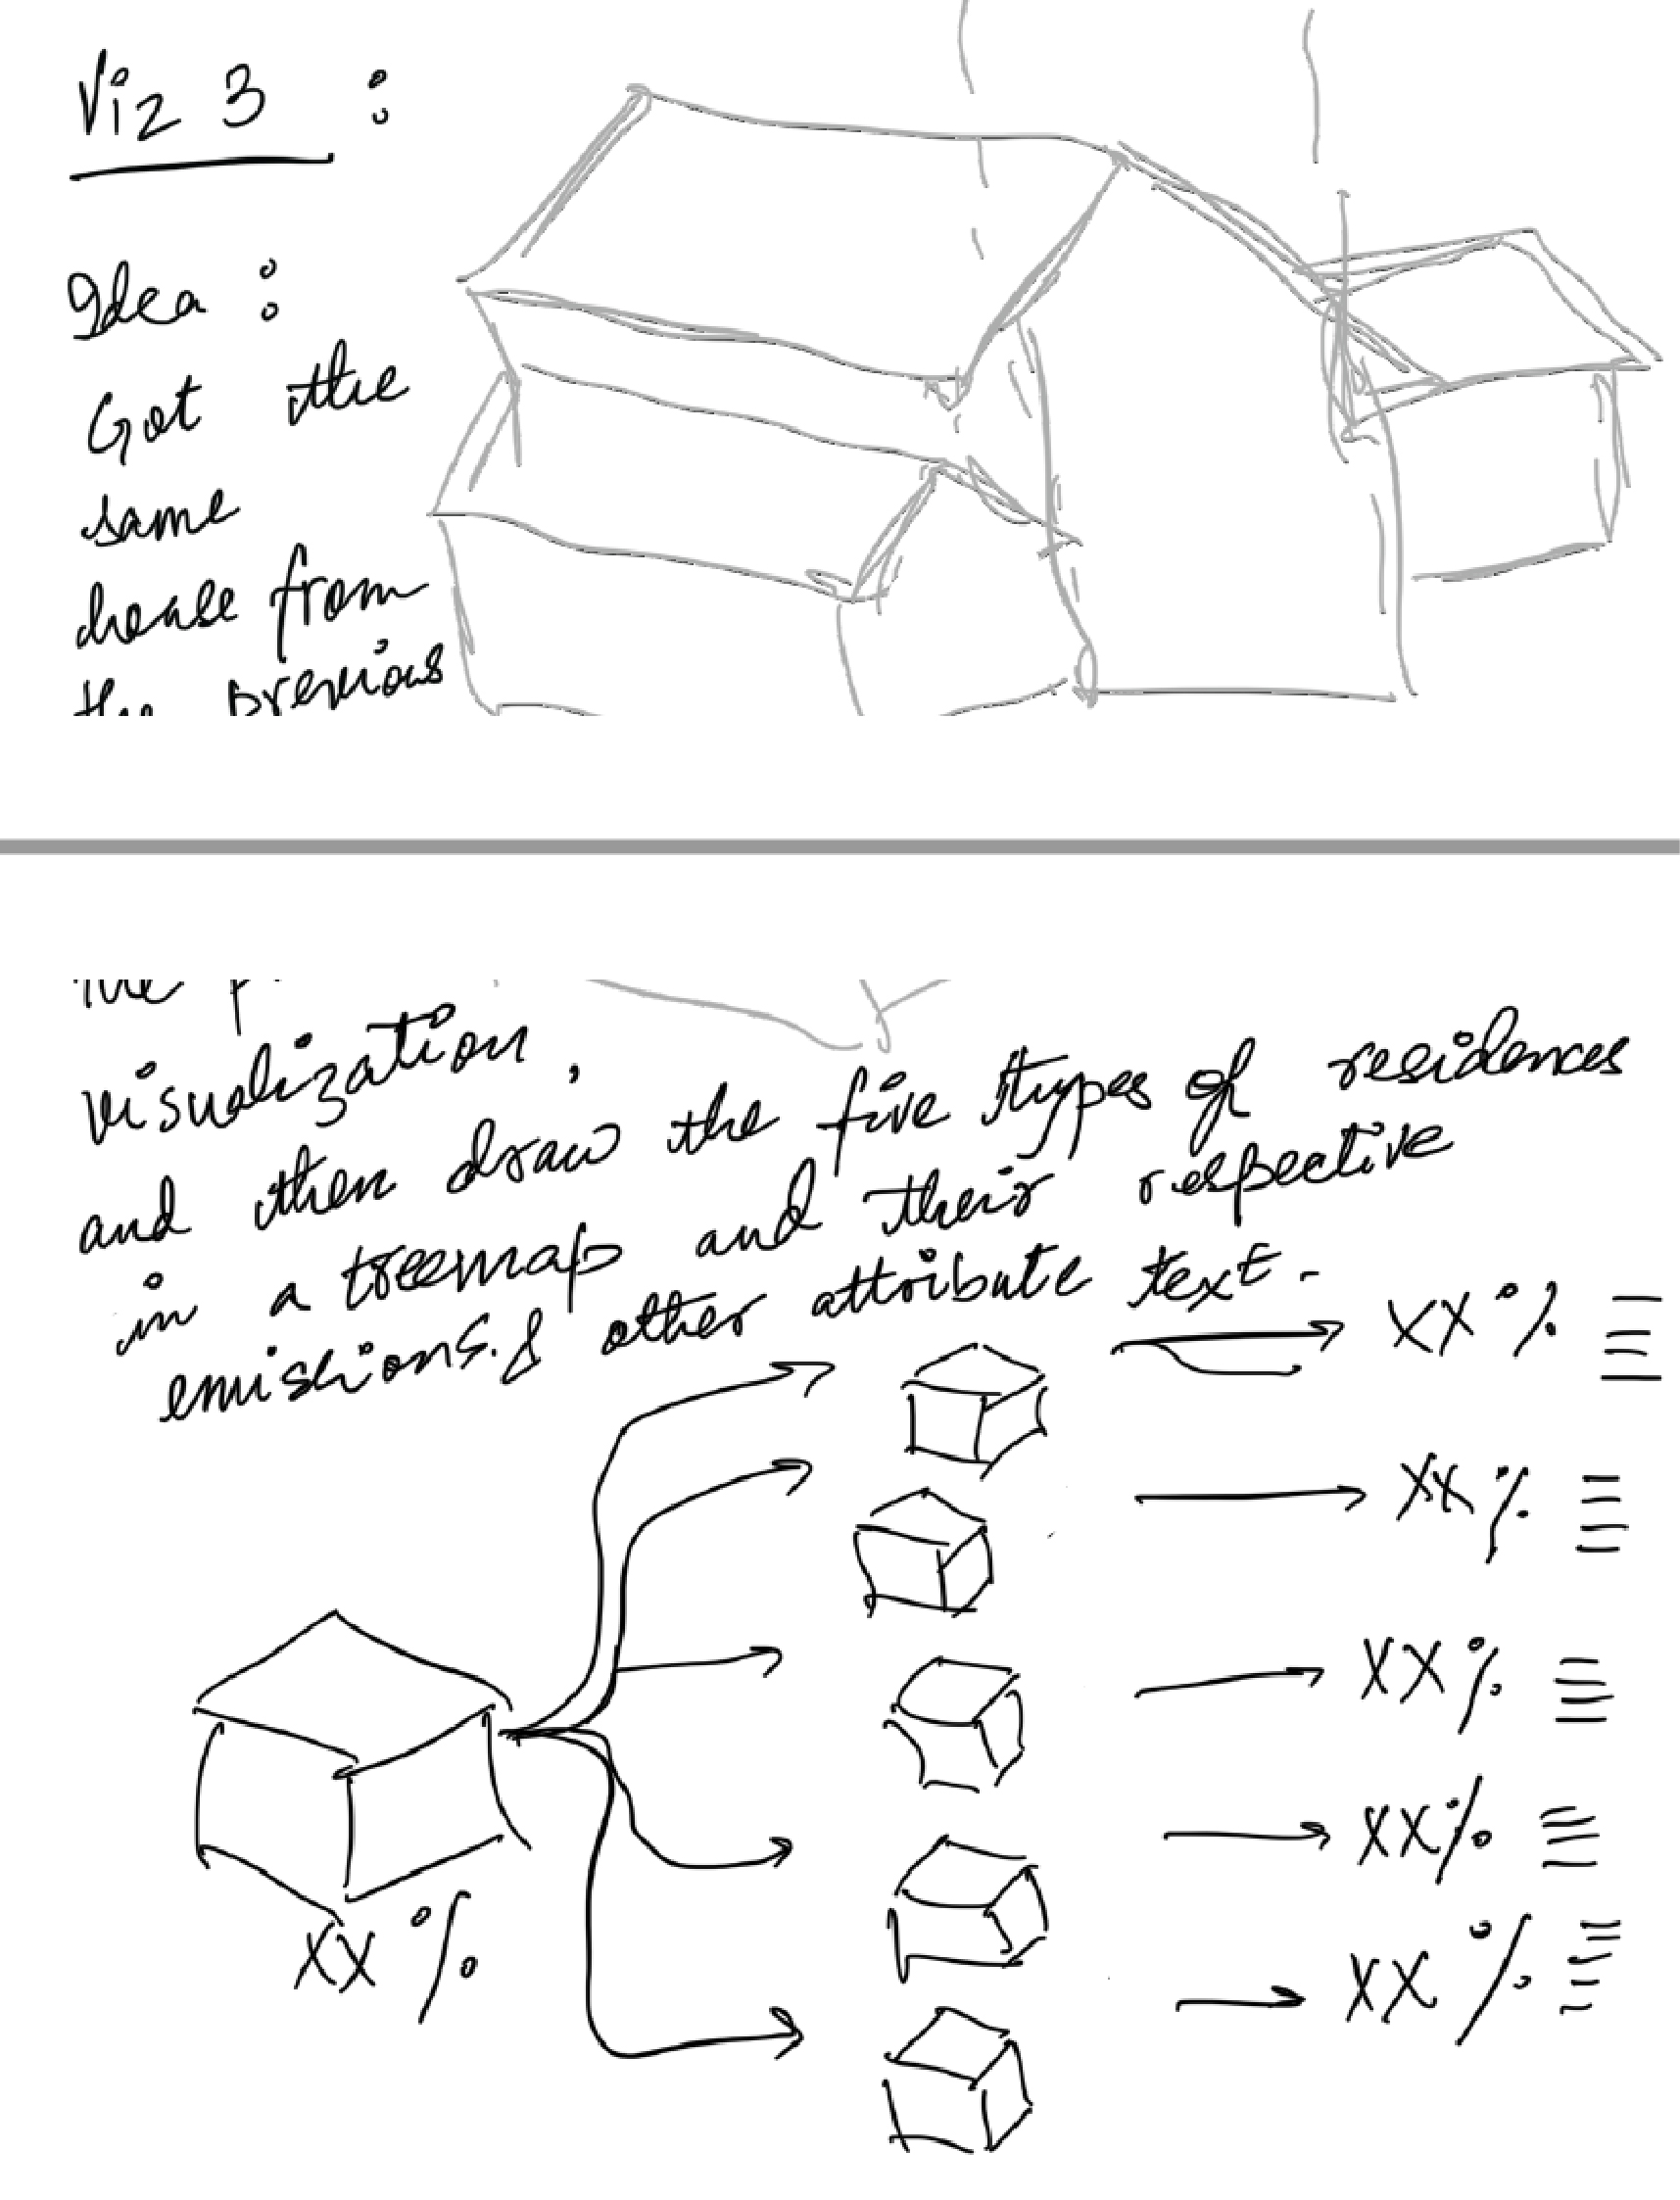 Viz 3 :
Idea :
Got the
same
house from
the previous
the p
visualization,
and then draw the five types of residences
in a treemap and their respective
emissions. & other attribute text.
XX %
XX %
XX %
XX %
XX %
XX %